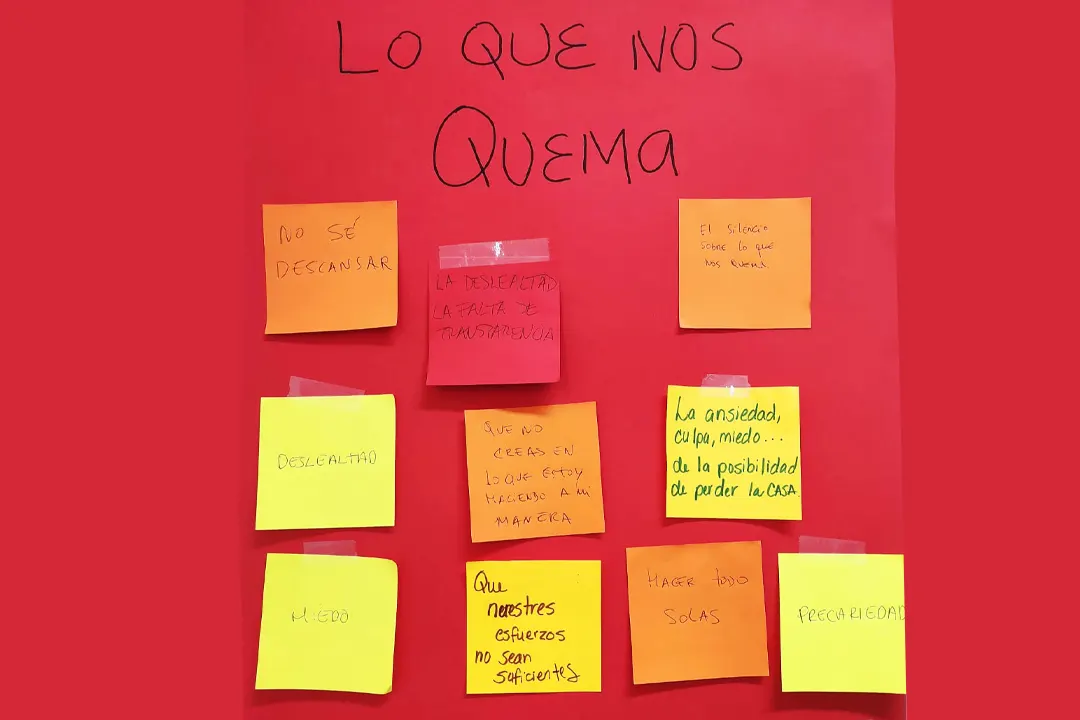 LO QUE NOS
QUEMA
NO SÉ
DESCANSAR
LA DESLEALTAD
LA FALTA DE
TRANSPARENCIA
El silencio
sobre lo que
nos quema
DESLEALTAD
QUE NO
CREAS EN
LO QUE ESTOY
HACIENDO A MI
MANERA
La ansiedad,
culpa, miedo...
de la posibilidad
de perder la CASA.
MIEDO
Que
nuestres
esfuerzos
no sean
suficientes
HACER TODO
SOLAS
PRECARIEDAD